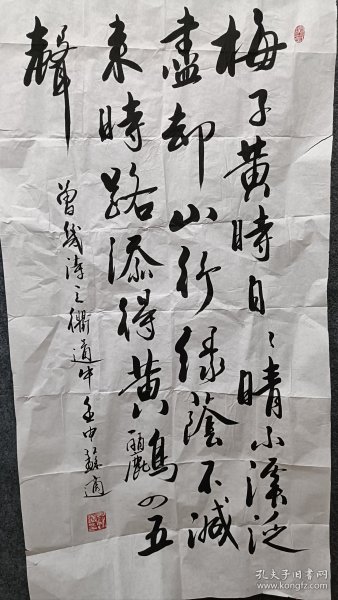 梅子黄時日〻晴小溪泛
盡却山行绿蔭不減
来時路添得黄鸝四五
聲
曾幾诗三衢道中壬申蘇適
孔夫子旧书网